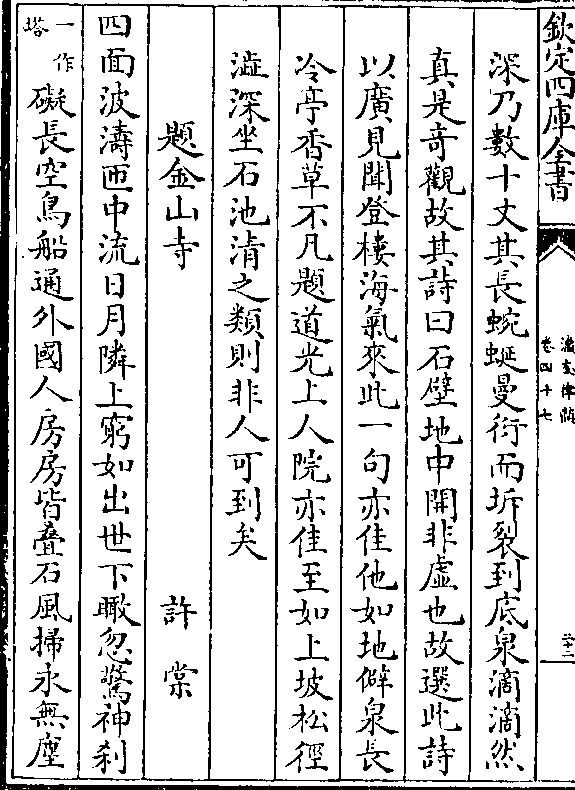 欽定四庫全書
瀛奎律髓
卷四十七
三十二
深乃數十丈其長蜿蜒曼衍而坼裂到底泉滴滴然
真是竒觀故其詩曰石壁地中開非虚也故選此詩
以廣見聞登棲海氣來此一句亦佳他如地僻泉長
冷亭香草不凡題道光上人院亦佳至如上坡松徑
澁深坐石池清之類則非人可到矣
題金山寺　許棠
四面波濤匝中流日月隣上窮如出世下瞰忽驚神刹
一作塔礙長空鳥船通外國人房房皆叠石風掃永無塵